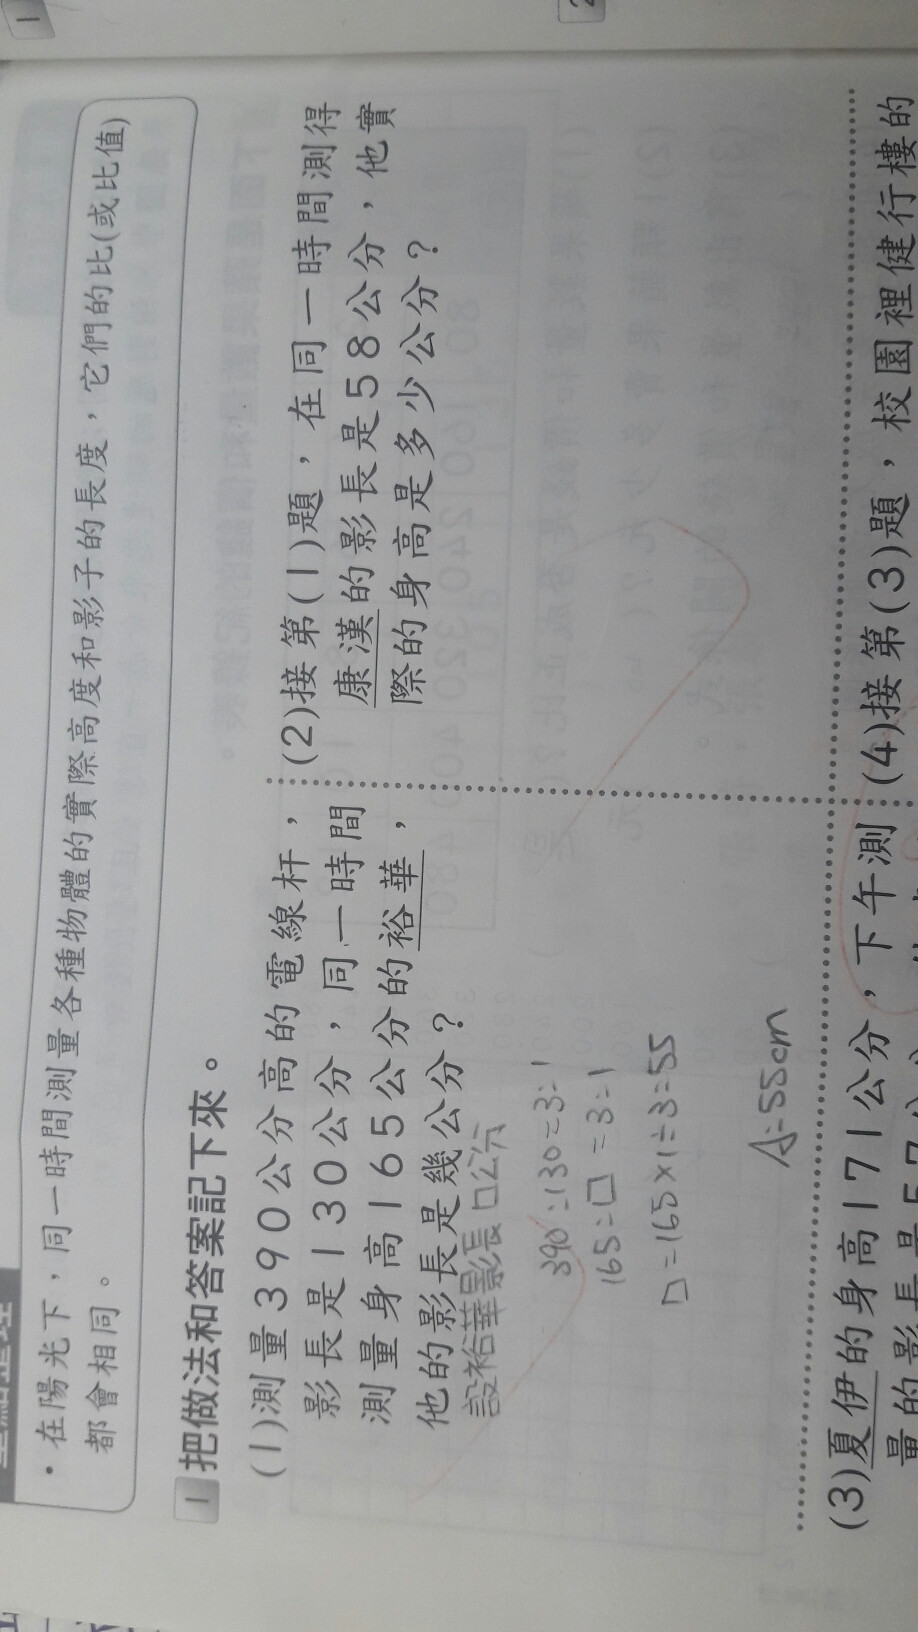 • 在陽光下，同一時間測量各種物體的實際高度和影子的長度，它們的比(或比值)
都會相同。
1 把做法和答案記下來。
(1)測量390公分高的電線杆，
影長是130公分，同一時間
測量身高165公分的裕華，
他的影長是幾公分？
設裕華影長□公分
390:130=3:1
165:□=3:1
□=165×1÷3=55
A=55cm
(2)接第(1)題，在同一時間測得
康漢的影長是58公分，他實
際的身高是多少公分？
(3)夏伊的身高171公分，下午測
量的影長是57公分
(4)接第(3)題，校園裡健行樓的